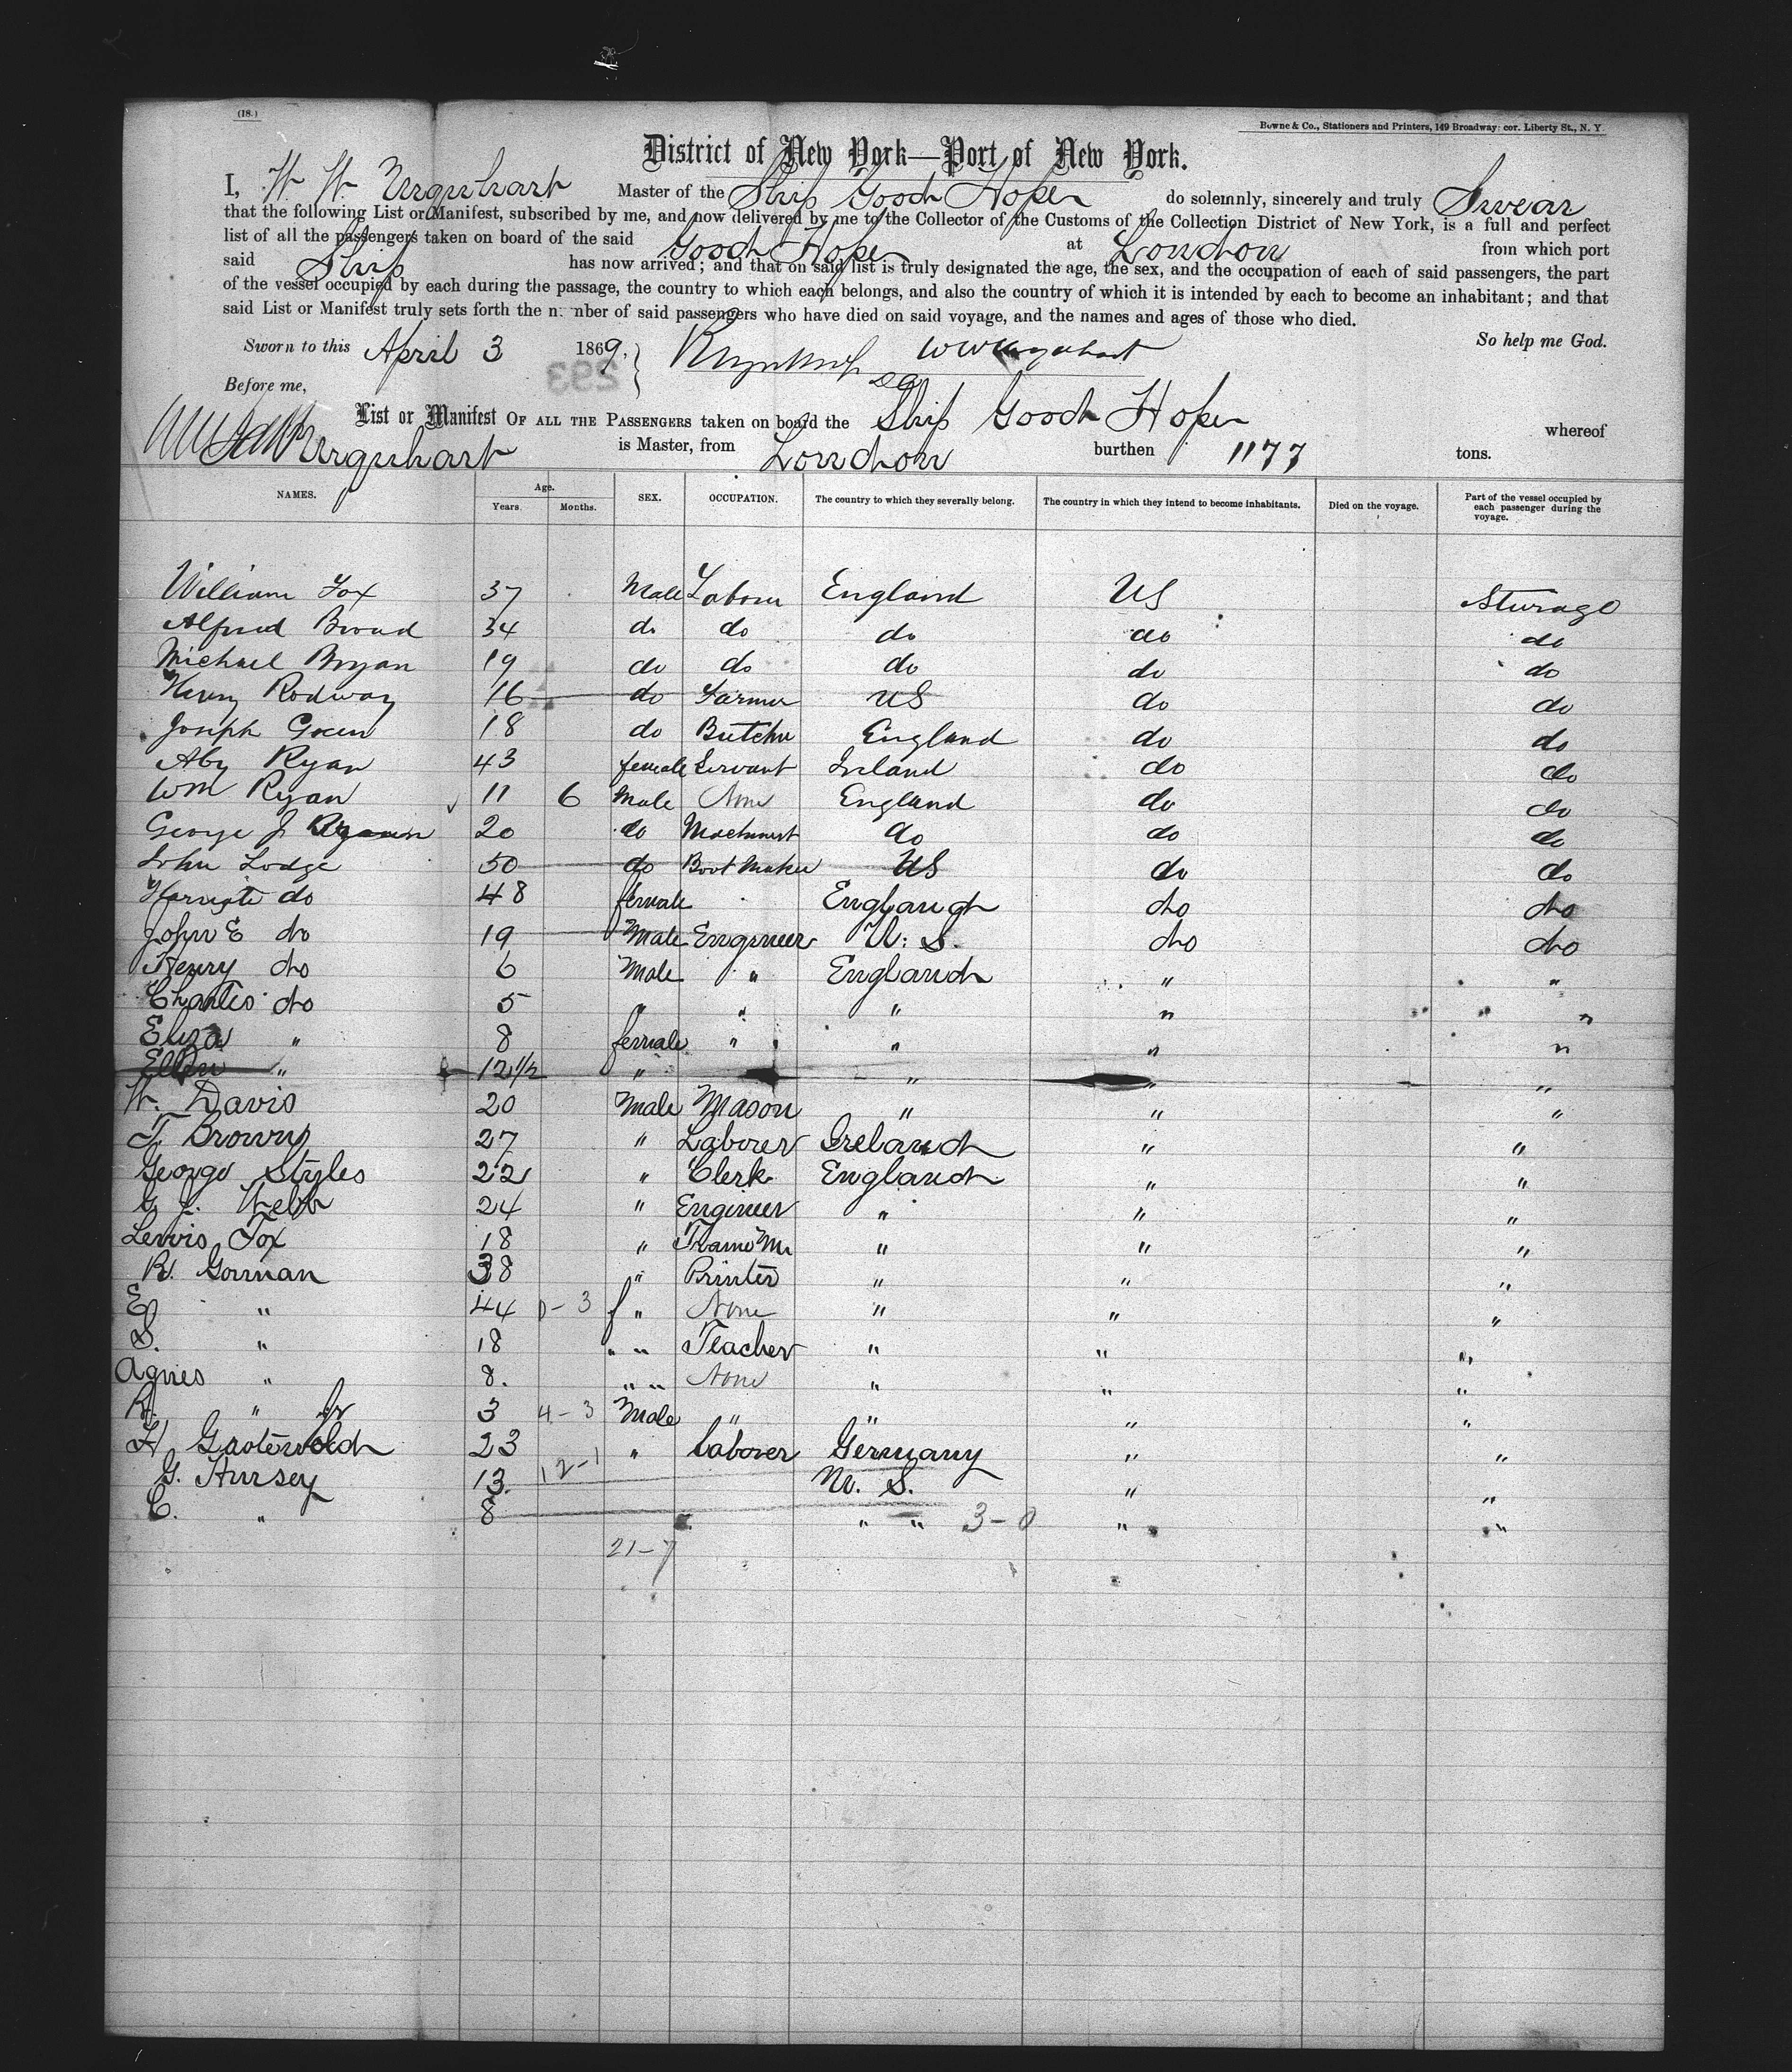 (18.)
Bowne & Co., Stationers and Printers, 149 Broadway: cor. Liberty St., N. Y
District of New York—Port of New York.
I, W. W. Urquhart Master of the Ship Good Hope do solemnly, sincerely and truly Swear
that the following List or Manifest, subscribed by me, and now delivered by me to the Collector of the Customs of the Collection District of New York, is a full and perfect
list of all the passengers taken on board of the said Good Hope at London from which port
said Ship has now arrived; and that on said list is truly designated the age, the sex, and the occupation of each of said passengers, the part
of the vessel occupied by each during the passage, the country to which each belongs, and also the country of which it is intended by each to become an inhabitant; and that
said List or Manifest truly sets forth the number of said passengers who have died on said voyage, and the names and ages of those who died.
Sworn to this April 3 1869. WW Urquhart So help me God.
293
Before me,
List or Manifest OF ALL THE PASSENGERS taken on board the Ship Good Hope whereof
Urquhart is Master, from London burthen 1177 tons.
NAMES. Age. Years. Months. SEX. OCCUPATION. The country to which they severally belong. The country in which they intend to become inhabitants. Died on the voyage. Part of the vessel occupied by each passenger during the voyage.
William Fox 37 Male Labour England US Sturage
Alfred Broad 34 do do do do do
Michael Bryan 19 do do do do do
Henry Rodway 16 do Farmer US do do
Joseph Green 18 do Butcher England do do
Aby Ryan 43 female Servant Ireland do do
Wm Ryan 11 6 Male None England do do
George J 20 do Machinist do do do
John Lodge 50 do Boot Maker US do do
Harriate do 48 female England do do
John E do 19 Male Engineer U. S. do do
Henry do 6 Male " England " "
Charles do 5 " " " " "
Eliza " 8 female " " " "
Ellen " 12 1/2 " " " "
W. Davis 20 Male Mason " " "
T. Brown 27 " Laborer Ireland " "
George Styles 22 " Clerk England " "
G. J. Webb 24 " Engineer " " "
Lewis Fox 18 " Frame Mr " " "
R. Gorman 38 " Printer " " "
E " 44 0-3 f " None " " "
S. " 18 " " Teacher " " "
Agnes " 8. " " None " " "
R. " Jr 3 4-3 Male " " " "
H Grotewold 23 " laborer Germany " "
G. Hursey 13. 12-1 U. S. " "
C. " 8 " " 3-0 " "
21-7